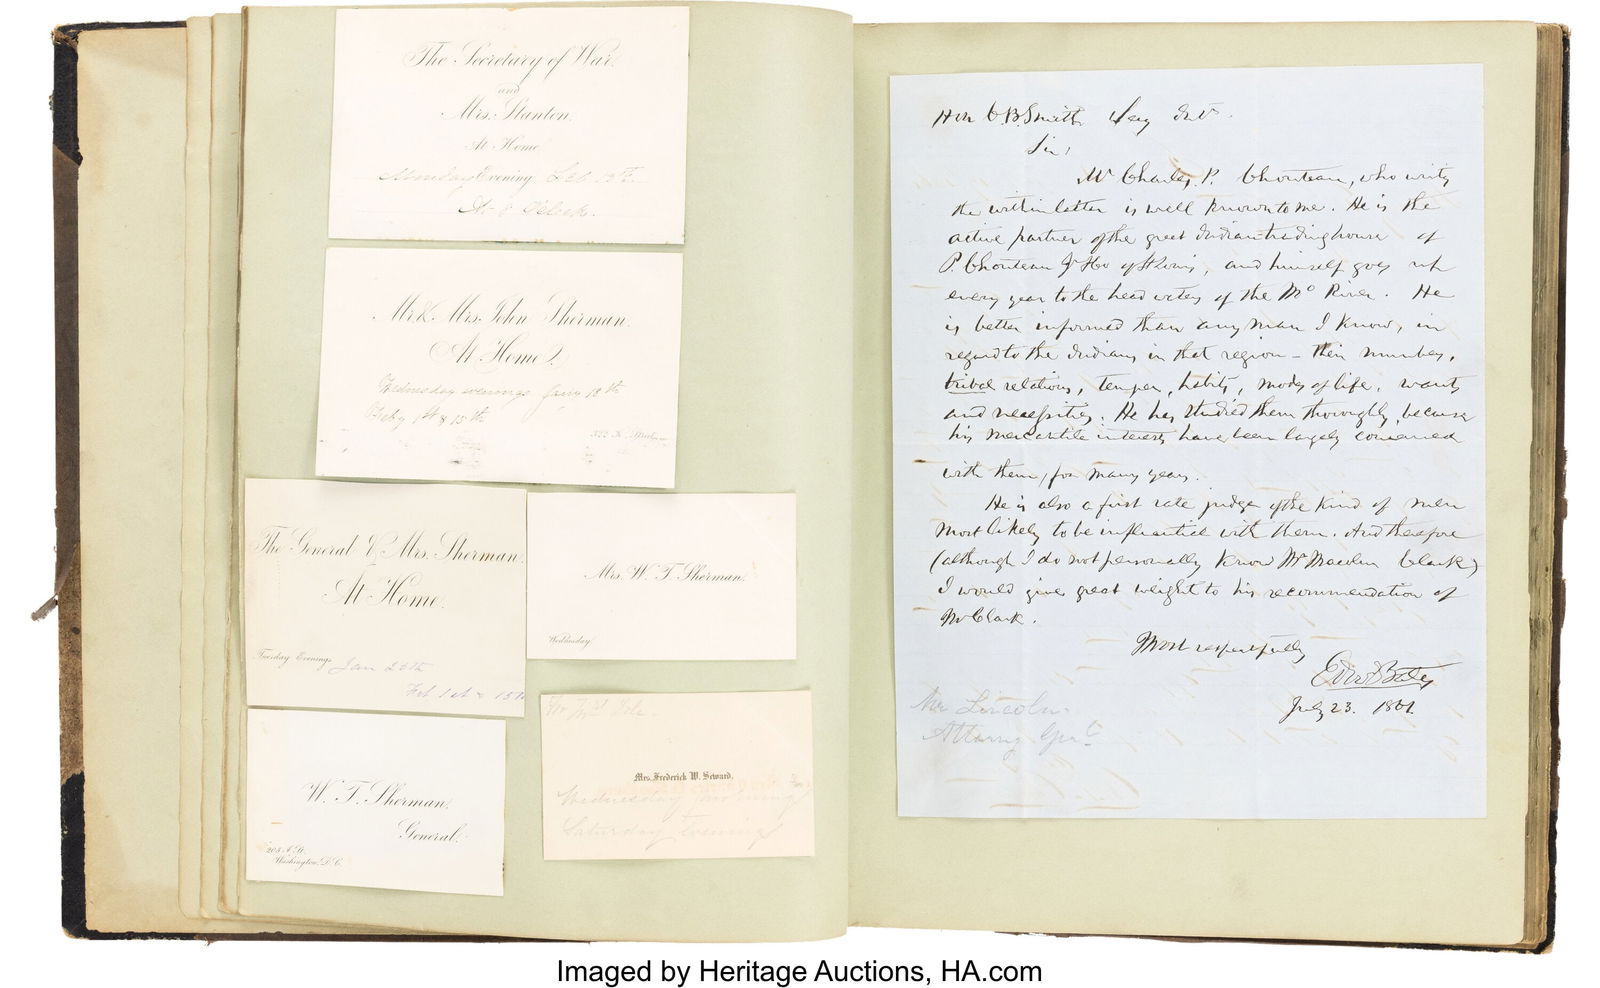 The Secretary of War
and
Mrs. Stanton.
At Home
Monday Evening, Feb 12th.
At 8 O'clock.
Mr. & Mrs. John Sherman.
At Home
Wednesday evenings Jany 18th
Feby 1st & 15th
The General & Mrs. Sherman.
At Home.
Tuesday Evenings Jan 20th
Feb 1st & 15th
Mrs. W. T. Sherman.
Wednesday.
W. T. Sherman,
General.
Washington, D.C.
Mrs. Frederick W. Seward.
Wednesday mornings
Saturday Evenings
Hon C. B. Smith Secy Intr.
Sir,
Mr Charles P. Chouteau, who writes
the within letter is well known to me. He is the
active partner of the great Indian trading house of
P. Chouteau Jr & Co of St Louis, and himself goes up
every year to the head waters of the Mo River. He
is better informed than any man I know, in
regard to the Indians in that region - their numbers,
tribal relations, temper, habits, modes of life, wants
and necessities. He has studied them thoroughly, because
his mercantile interests have been largely concerned
with them, for many years.
He is also a first rate judge of the kind of men
most likely to be influential with them. And therefore
(although I do not personally know Mr Clark)
I would give great weight to his recommendation of
Mr Clark.
Most respectfully
Edwd Bates
July 23. 1861.
Mr Lincoln's
Attorny Genl
Imaged by Heritage Auctions, HA.com